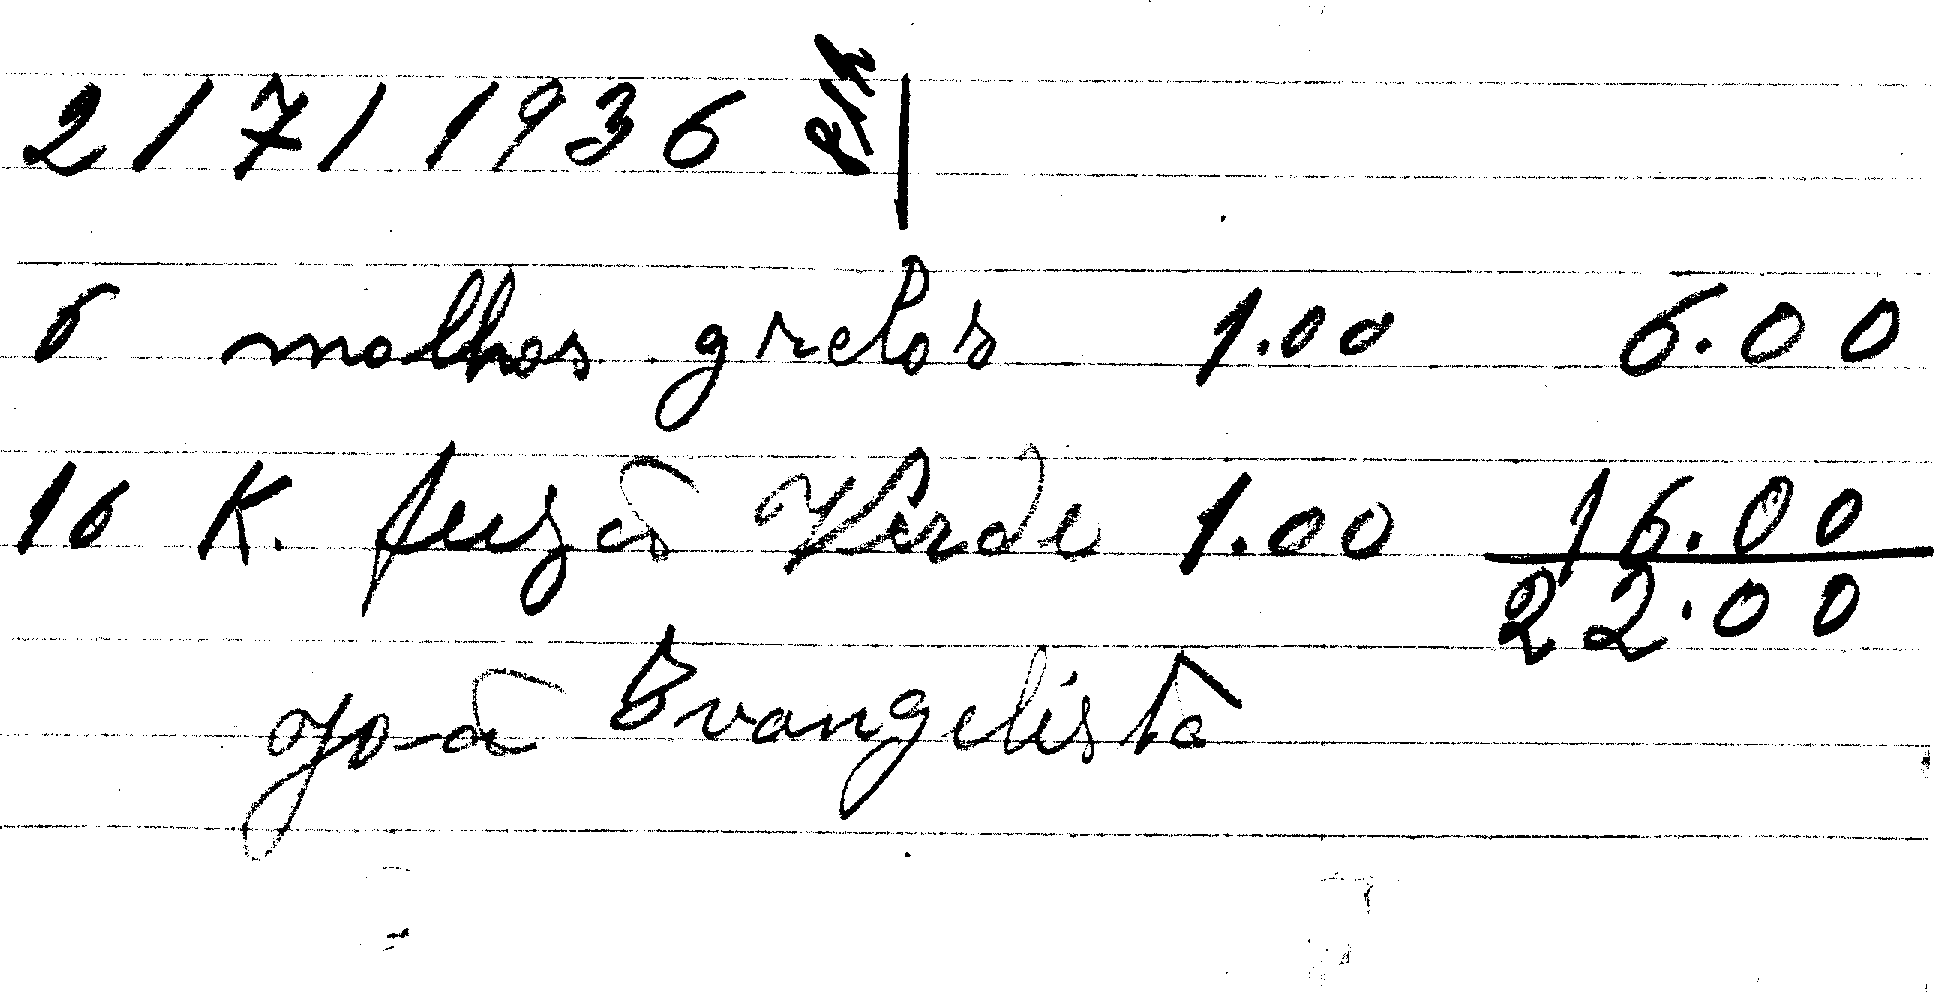 2/7/1936
6 molhos grelos 1.00 6.00
16 K. feijão Verde 1.00 16.00
22.00
João Evangelista